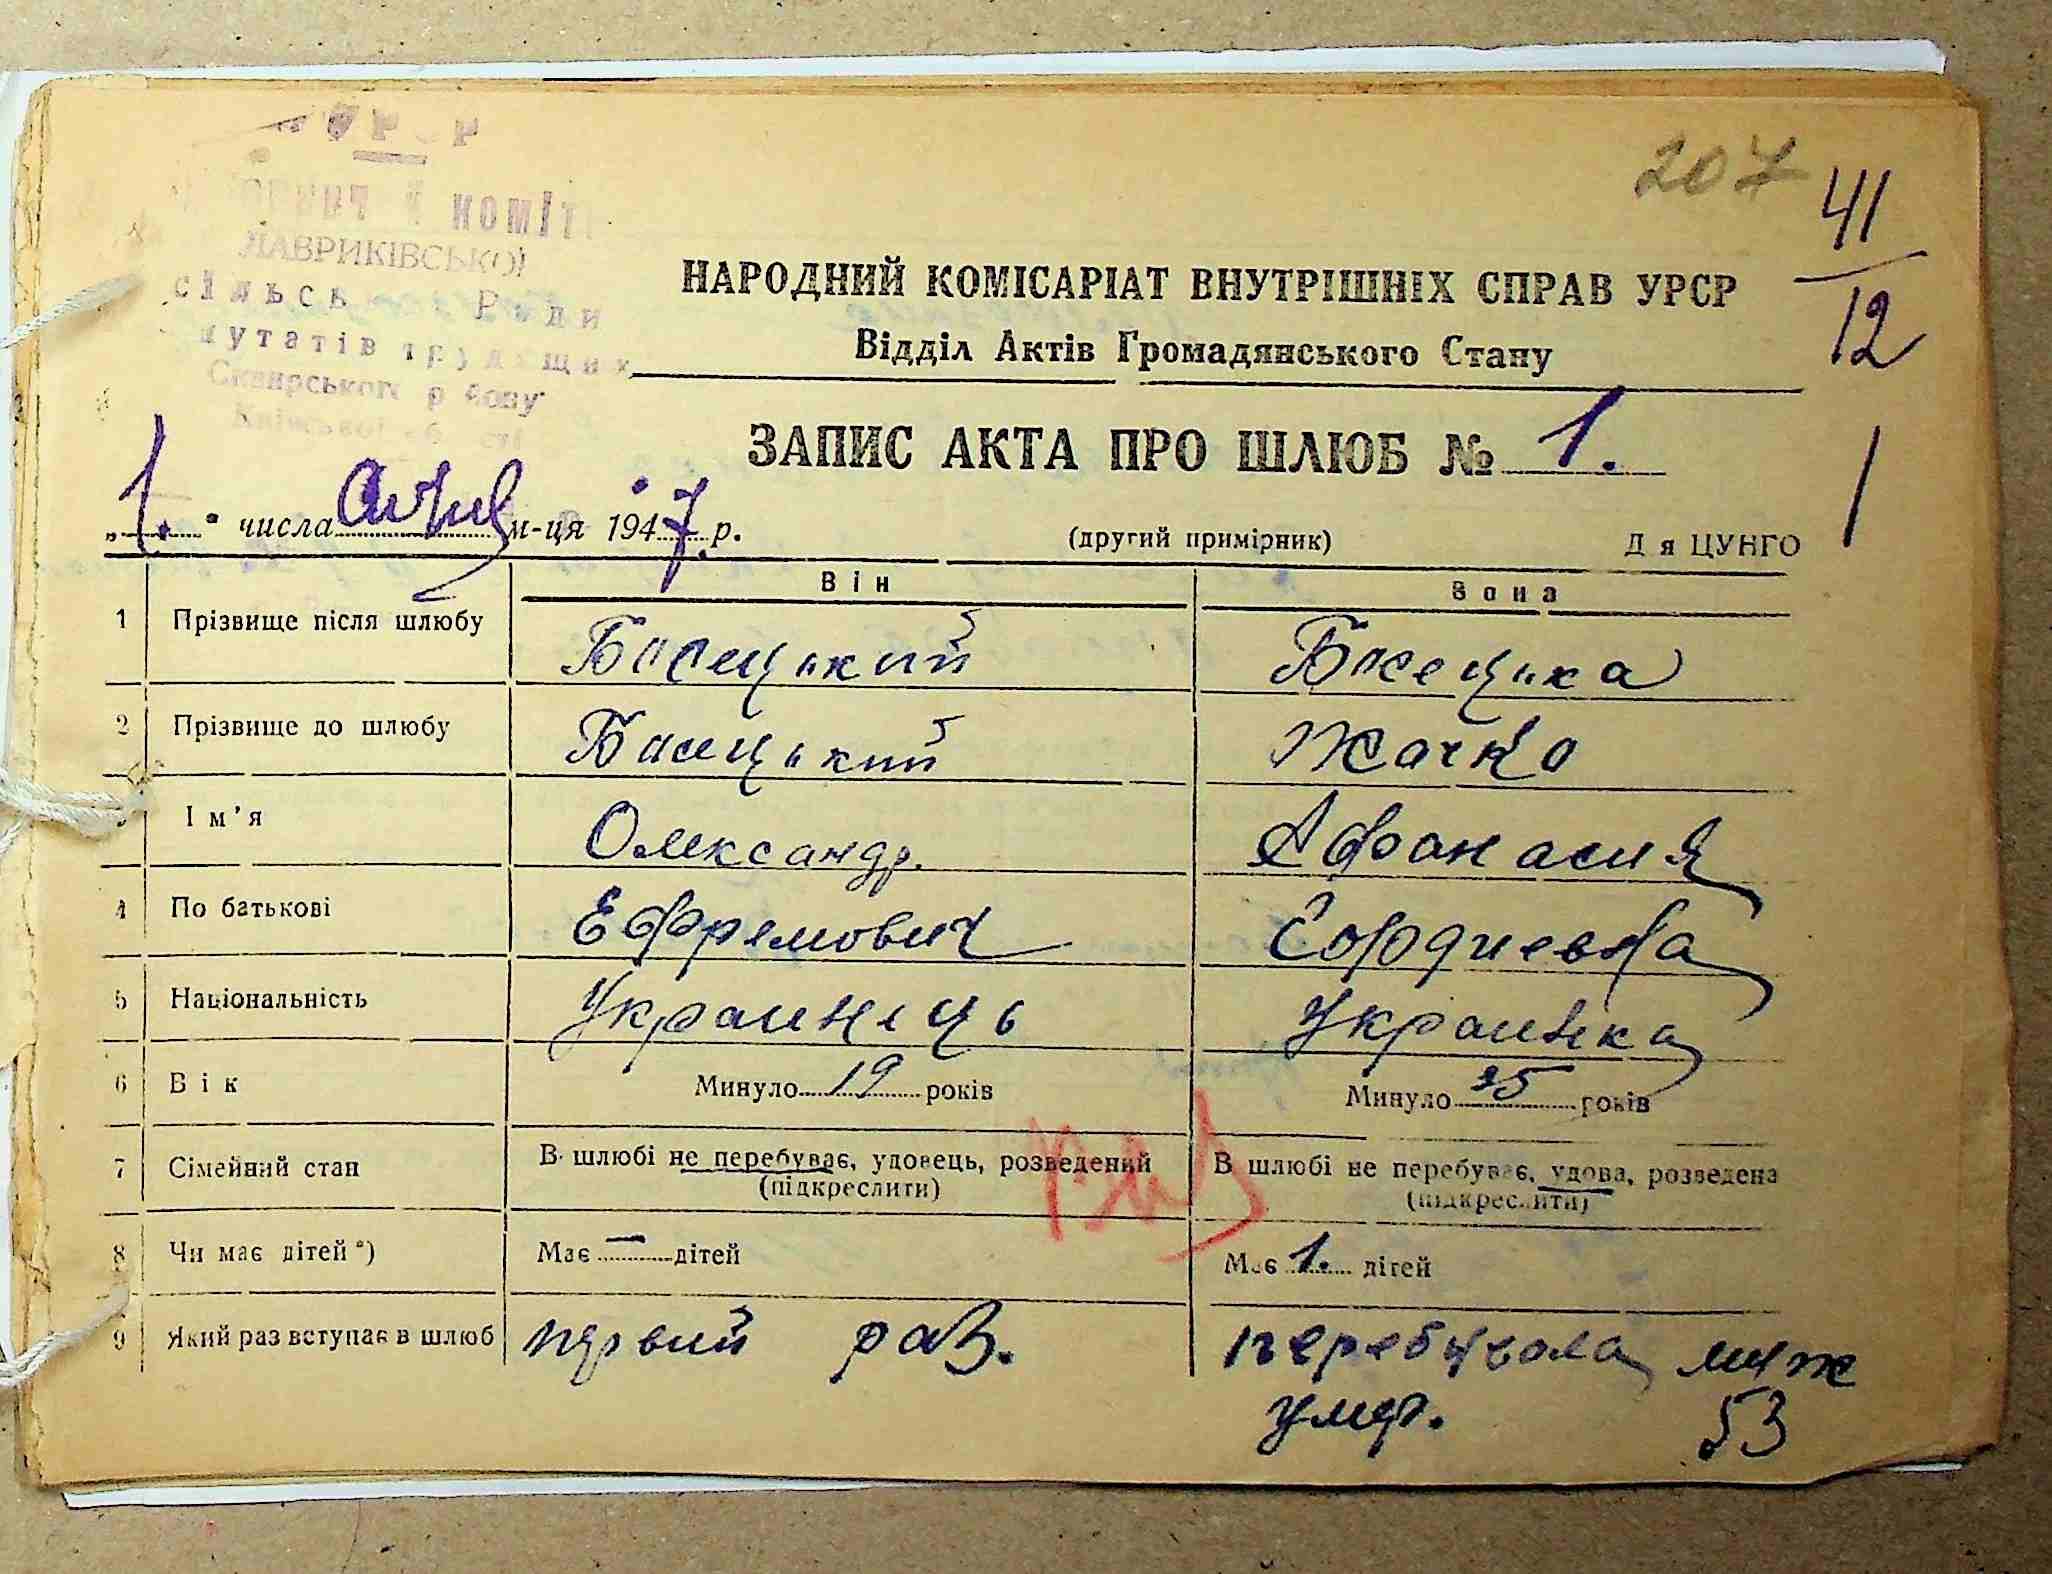 207
41
12
комітет
ЛАВРИКІВСЬКОЇ
сільської Ради
депутатів трудящих
Сквирського району
Київської області
НАРОДНИЙ КОМІСАРІАТ ВНУТРІШНІХ СПРАВ УРСР
Відділ Актів Громадянського Стану
ЗАПИС АКТА ПРО ШЛЮБ № 1.
„1." числа січня м-ця 1947 р. (другий примірник) Для ЦУНГО 1
Він Вона
1 Прізвище після шлюбу Басецький Басецька
2 Прізвище до шлюбу Басецький Жачко
3 Ім'я Олександр. Афанасия
4 По батькові Ефремович Гордиевна
5 Національність Украинець Украинка
6 Вік Минуло 19 років Минуло 25 років
7 Сімейний стан В шлюбі не перебуває, удовець, розведений (підкреслити) В шлюбі не перебуває, удова, розведена (підкреслити)
8 Чи має дітей*) Має — дітей Має 1. дітей
9 Який раз вступає в шлюб первий раз. перебувала муж
умер. 53